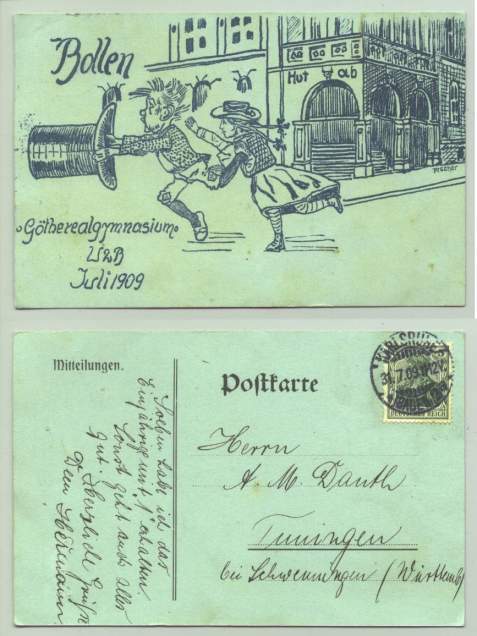 Bollen
Hut ab
Götherealgymnasium
UIIB
Juli 1909
Mitteilungen.
Postkarte
KARLSRUHE
31.7.09
DEUTSCHES REICH
Soeben habe ich das
Einjährige mit 1 erhalten.
Sonst geht auch alles
gut. Herzliche Grüße
Dein
Herrn
A. M. Dauth
Tuningen
bei Schwenningen (Württemb)